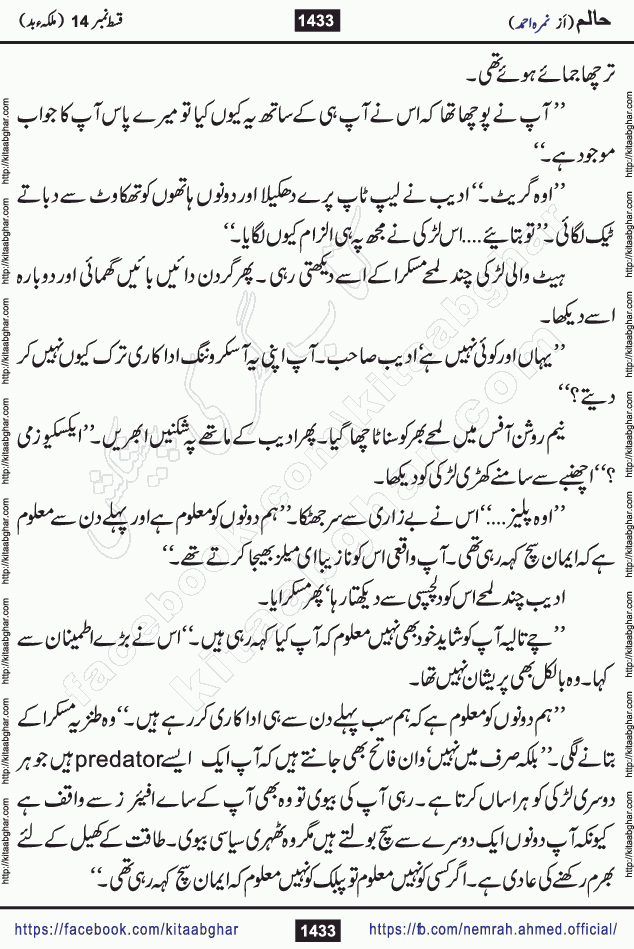 حالم (از نمرہ احمد) 1433 قسط نمبر 14 (ملکہء بد)
ترچھا جمائے ہوئے تھی۔
’’ آپ نے پوچھا تھا کہ اس نے آپ ہی کے ساتھ یہ کیوں کیا تو میرے پاس آپ کا جواب
موجود ہے۔‘‘
’’اوہ گریٹ۔‘‘ ادیب نے لیپ ٹاپ پرے دھکیلا اور دونوں ہاتھوں کو تھکاوٹ سے دباتے
ٹیک لگائی۔’’تو بتایئے....اس لڑکی نے مجھ پہ ہی الزام کیوں لگایا۔‘‘
ہیٹ والی لڑکی چند لمحے مسکرا کے اسے دیکھتی رہی۔ پھر گردن دائیں بائیں گھمائی اور دوبارہ
اسے دیکھا۔
’’یہاں اور کوئی نہیں ہے‘ ادیب صاحب۔ آپ اپنی یہ آسکر وننگ اداکاری ترک کیوں نہیں کر
دیتے؟‘‘
نیم روشن آفس میں لمحے بھر کو سناٹا چھا گیا۔ پھر ادیب کے ماتھے پہ شکنیں ابھریں۔’’ایکسکیوزمی
؟‘‘اچنبھے سے سامنے کھڑی لڑکی کو دیکھا۔
’’اوہ پلیز....‘‘ اس نے بے زاری سے سر جھٹکا۔’’ہم دونوں کو معلوم ہے اور پہلے دن سے معلوم
ہے کہ ایمان سچ کہہ رہی تھی۔ آپ واقعی اس کو نازیبا ای میلز بھیجا کرتے تھے۔‘‘
ادیب چند لمحے اس کو دلچسپی سے دیکھتا رہا‘ پھر مسکرایا۔
’’چے تالیہ آپ کو شاید خود بھی نہیں معلوم کہ آپ کیا کہہ رہی ہیں۔‘‘اس نے بڑے اطمینان سے
کہا۔ وہ بالکل بھی پریشان نہیں تھا۔
’’ہم دونوں کو معلوم ہے کہ ہم سب پہلے دن سے ہی اداکاری کر رہے ہیں۔‘‘وہ طنزیہ مسکرا کے
بتانے لگی۔’’بلکہ صرف میں نہیں‘ وان فاتح بھی جانتے ہیں کہ آپ ایک ایسے predator ہیں جو ہر
دوسری لڑکی کو ہراساں کرتا ہے۔ رہی آپ کی بیوی تو وہ بھی آپ کے سارے افیئرز سے واقف ہے
کیونکہ آپ دونوں ایک دوسرے سے سچ بولتے ہیں مگر وہ ٹھہری سیاسی بیوی۔ طاقت کے کھیل کے لئے
بھرم رکھنے کی عادی ہے۔ اگر کسی کو نہیں معلوم تو پبلک کو نہیں معلوم کہ ایمان سچ کہہ رہی تھی۔‘‘
https://facebook.com/kitaabghar 1433 https://fb.com/nemrah.ahmed.official/
http://kitaabghar.com http://kitaabghar.com http://kitaabghar.com http://kitaabghar.com http://kitaabghar.com http://kitaabghar.com http://kitaabghar.com http://kitaabghar.com
http://kitaabghar.com http://kitaabghar.com http://kitaabghar.com http://kitaabghar.com http://kitaabghar.com http://kitaabghar.com http://kitaabghar.com http://kitaabghar.com
کتاب گھر کی پیشکش
facebook.com/kitaabghar
kitaabghar.com